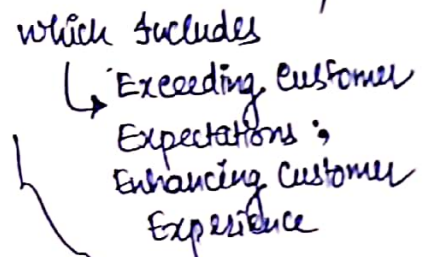 which Includes
Exceeding Customer
Expectations ;
Enhancing Customer
Experience